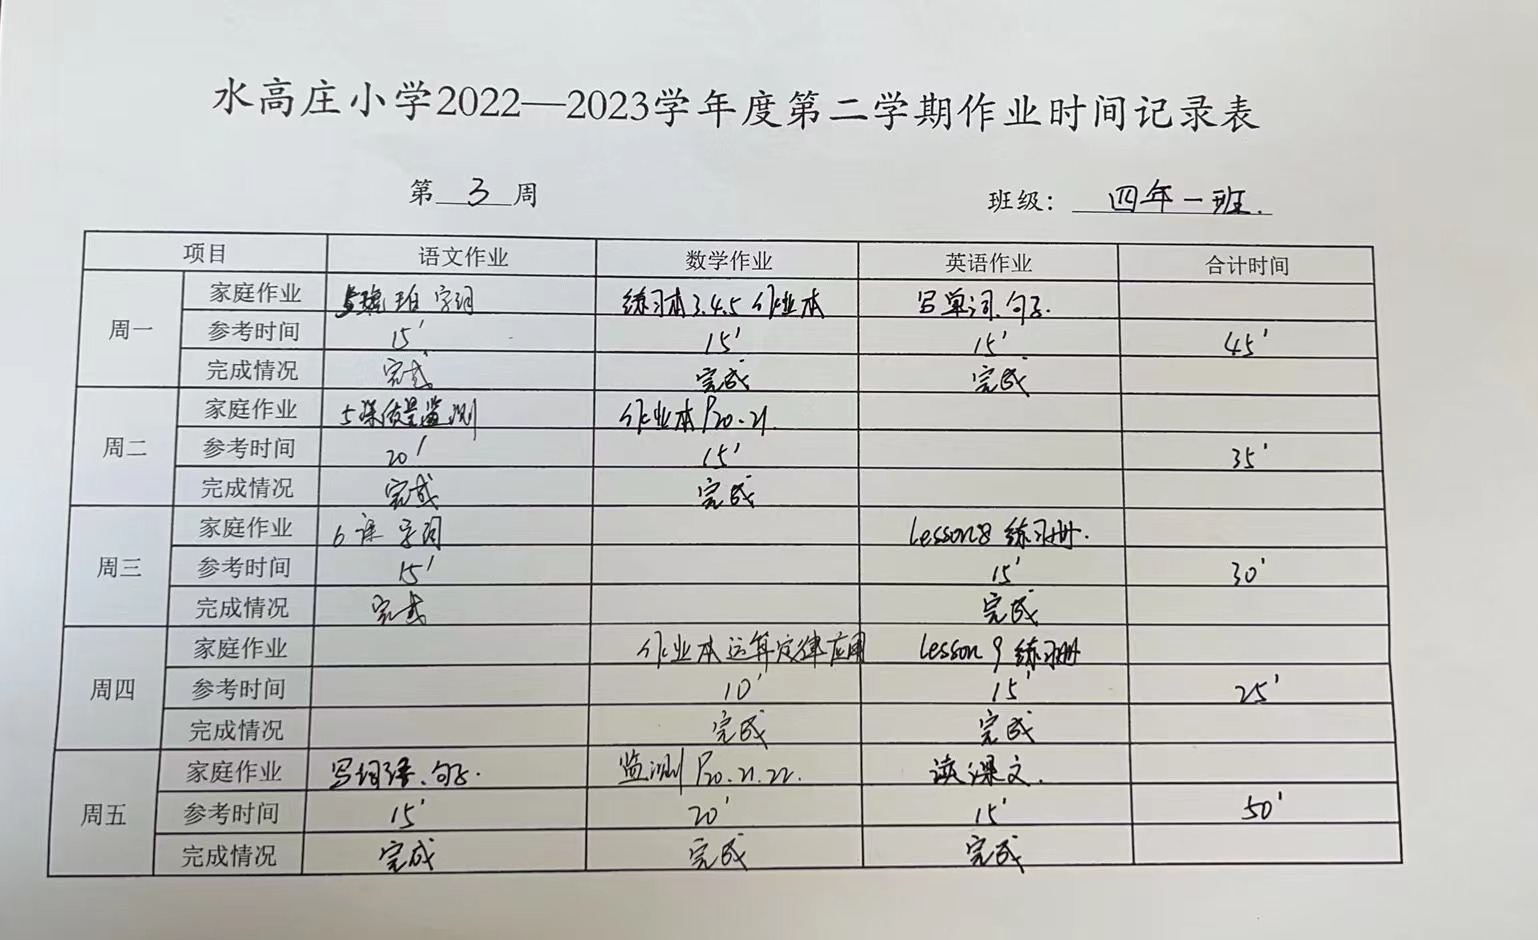 水高庄小学2022—2023学年度第二学期作业时间记录表
第 3 周 班级： 四年一班.
项目 语文作业 数学作业 英语作业 合计时间
周一 家庭作业 琥珀 字词 练习本3.4.5 作业本 写单词、句子.
参考时间 15' 15' 15' 45'
完成情况 完成 完成 完成
周二 家庭作业 5课质量监测 作业本P20.21
参考时间 20' 15' 35'
完成情况 完成 完成
周三 家庭作业 6课 字词 lesson8 练习册.
参考时间 15' 15' 30'
完成情况 完成 完成
周四 家庭作业 作业本 运算定律应用 lesson 9 练习册
参考时间 10' 15' 25'
完成情况 完成 完成
周五 家庭作业 写词语、句子. 监测P20.21.22. 读课文.
参考时间 15' 20' 15' 50'
完成情况 完成 完成 完成